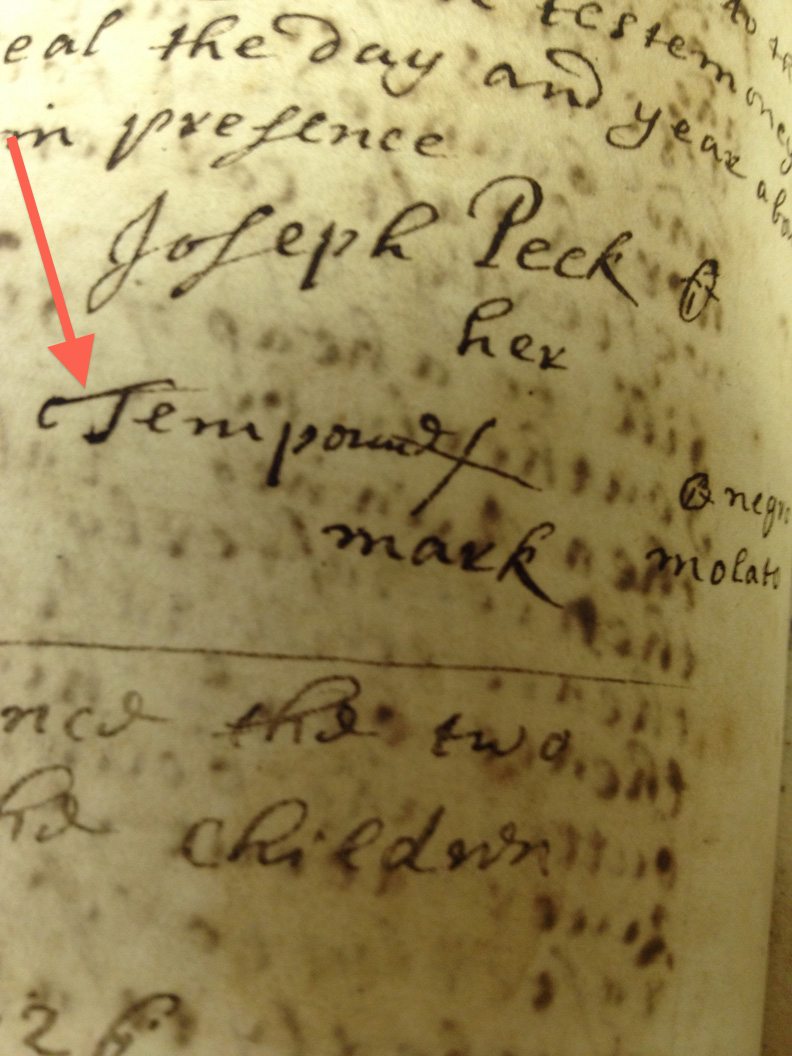 testemoney to th
eal the day and year abov
in presence
Joseph Peck
her
Tempound
mark
negro
molato
nce the two
he children